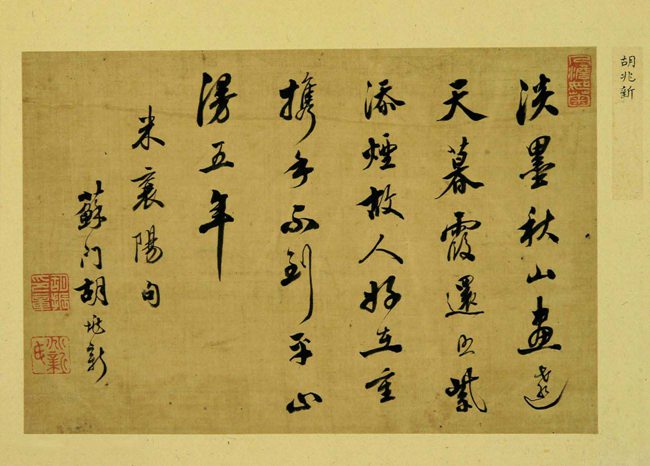 胡兆新
淡墨秋山畫遠
天暮霞還照紫
添煙故人好在重
携手不到平山
漫五年
米襄陽句
蘇门胡兆新